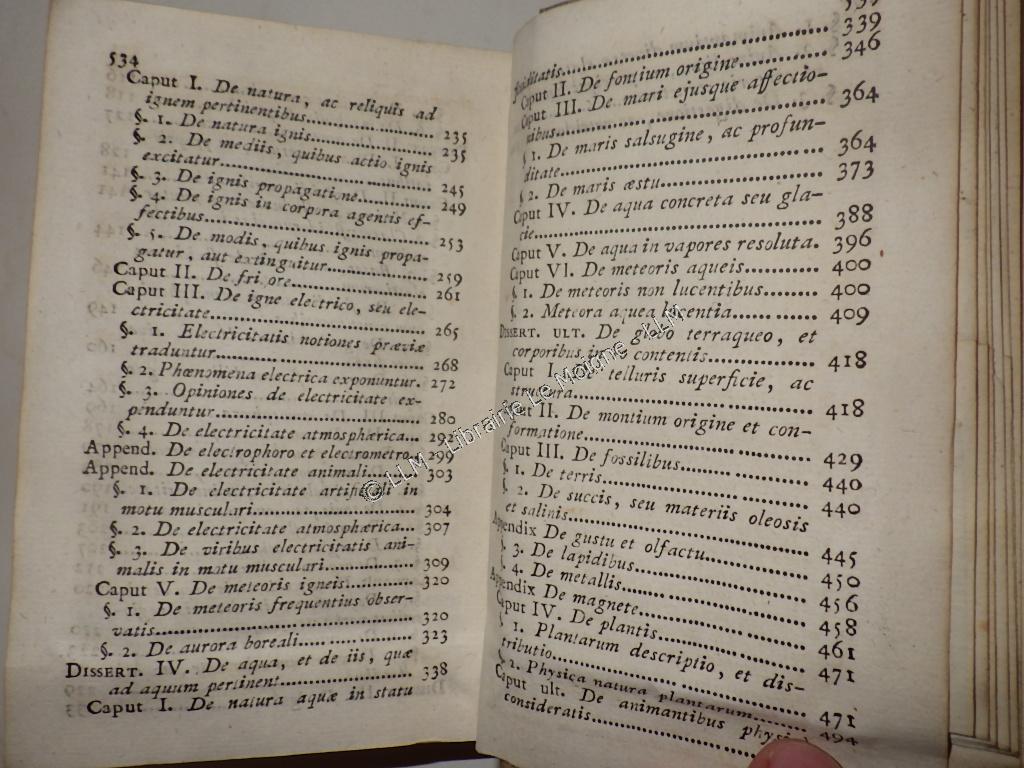 534
Caput I. De natura, ac reliquis ad
ignem pertinentibus............... 235
§. 1. De natura ignis............... 235
§. 2. De mediis, quibus actio ignis
excitatur............... 245
§. 3. De ignis propagatione............... 249
§. 4. De ignis in corpora agentis ef-
fectibus............... 253
§. 5. De modis, quibus ignis propa-
gatur, aut extinguitur............... 259
Caput II. De fri ore............... 261
Caput III. De igne electrico, seu ele-
ctricitate............... 265
§. 1. Electricitatis notiones præviæ
traduntur............... 268
§. 2. Phœnomena electrica exponuntur. 272
§. 3. Opiniones de electricitate ex-
penduntur............... 280
§. 4. De electricitate atmosphærica... 292
Append. De electrophoro et electrometro. 299
Append. De electricitate animali......... 303
§. 1. De electricitate artificiali in
motu musculari............... 304
§. 2. De electricitate atmosphærica... 307
§. 3. De viribus electricitatis ani-
malis in motu musculari............ 309
Caput V. De meteoris igneis............ 320
§. 1. De meteoris frequentius obser-
vatis............... 320
§. 2. De aurora boreali............... 323
DISSERT. IV. De aqua, et de iis, quæ
ad aquum pertinent............... 338
Caput I. De natura aquæ in statu
539
fluiditatis............... 339
Caput II. De fontium origine............ 346
Caput III. De mari ejusque affectio-
nibus............... 364
§ 1. De maris salsugine, ac profun-
ditate............... 364
§ 2. De maris æstu............... 373
Caput IV. De aqua concreta seu gla-
cie............... 388
Caput V. De aqua in vapores resoluta. 396
Caput VI. De meteoris aqueis............ 400
§ 1. De meteoris non lucentibus......... 400
§ 2. Meteora aquea lucentia............ 409
DISSERT. ULT. De globo terraqueo, et
corporibus in eo contentis............ 418
Caput I. De telluris superficie, ac
structura............... 418
Caput II. De montium origine et con-
formatione............... 429
Caput III. De fossilibus............... 440
§ 1. De terris............... 440
§ 2. De succis, seu materiis oleosis
et salinis............... 445
Appendix De gustu et olfactu............ 450
§. 3. De lapidibus............... 456
§. 4. De metallis............... 458
Appendix De magnete............... 461
Caput IV. De plantis............... 471
§ 1. Plantarum descriptio, et dis-
tributio............... 471
§ 2. Physica natura plantarum......... 494
Caput ult. De animantibus physi
consideratis...............
© LLM - Librairie Le Moigne - LLM